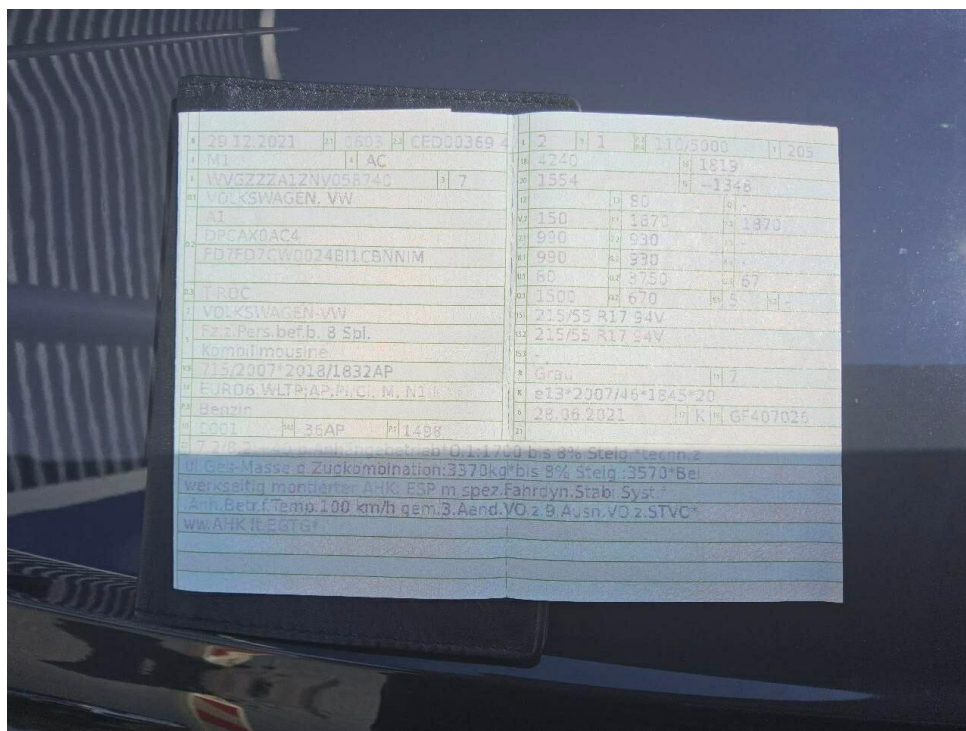 B 29.12.2021 2.1 0603 2.2 CED00369 4
J M1 4 AC
E WVGZZZA1ZNV058740 3 7
D.1 VOLKSWAGEN, VW
A1
D.2 DPCAX0AC4
FD7FD7CW0024BI1CBNNIM
D.3 T-ROC
2 VOLKSWAGEN-VW
5 Fz.z.Pers.bef.b. 8 Spl.
Kombilimousine
V.9 715/2007*2018/1832AP
14 EURO6,WLTP;AP;PI/CI, M, N1
P.3 Benzin
10 0001 14.1 36AP P.1 1498
L 2 9 1 P.2 P.4 110/5000 T 205
18 4240 19 1819
20 1554 G -1348
12 - 13 80 Q -
V.7 150 F.1 1870 F.2 1870
7.1 990 7.2 930 7.3 -
8.1 990 8.2 930 8.3 -
U.1 80 U.2 3750 U.3 67
O.1 1500 O.2 670 S.1 5 S.2 -
15.1 215/55 R17 94V
15.2 215/55 R17 94V
15.3 -
R Grau 11 7
K e13*2007/46*1845*20
6 28.06.2021 17 K 16 GF407026
21
Anhängebetrieb*O.1:1700 bis 8% Steig.*techn.z
ul.Ges-Masse d.Zugkombination:3370kg*bis 8% Steig.:3570*Bei
werkseitig montierter AHK: ESP m.spez.Fahrdyn.Stabi.Syst.f
.Anh.Betr.f.Temp.100 km/h gem.3.Aend.VO z.9.Ausn.VO z.STVO*
ww.AHK lt.EGTG*